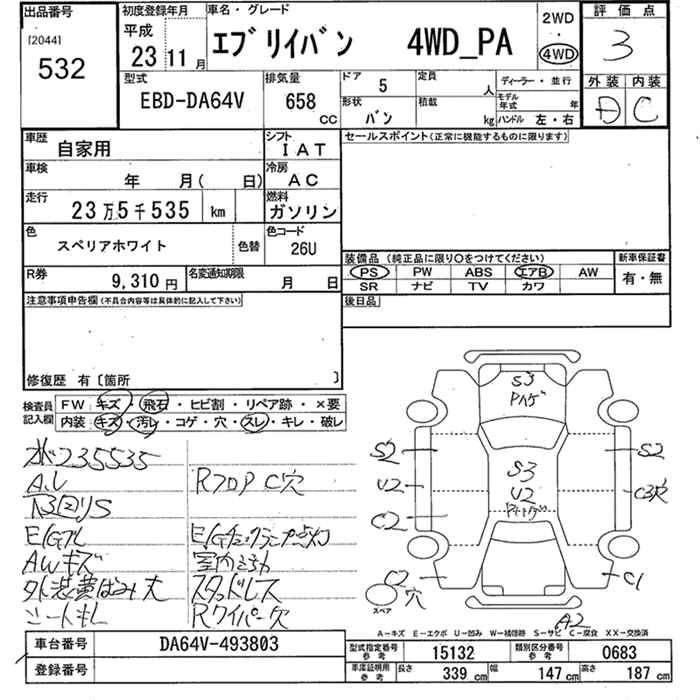 出品番号
[2044]
532
初度登録年月
平成
23 11 月
車名・グレード
エブリイバン 4WD_PA
2WD
4WD
評価点
3
外装 内装
D C
型式
EBD-DA64V
排気量
658 cc
ドア 5
定員 人
形状 バン
積載 kg
ディーラー・並行
モデル年式 年
ハンドル 左・右
車歴 自家用
シフト IAT
車検 年 月( 日)
冷房 AC
走行 23万5千535 km
燃料 ガソリン
色 スペリアホワイト 色替
色コード 26U
R券 9,310円
名変通知期限 月 日
セールスポイント(正常に機能するものに限ります)
装備品(純正品に限り○をつけてください)
PS PW ABS エアB AW
SR ナビ TV カワ
新車保証書
有・無
後日品
注意事項申告欄(不具合内容等は具体的に記入して下さい)
修復歴 有〔箇所 〕
検査員記入欄
FW キズ・飛石・ヒビ割・リペア跡・×要
内装 キズ・汚レ・コゲ・穴・スレ・キレ・破レ
235535
A.L
RフロアC穴
E/Gオル
E/Gチェックランプ点灯
AWキズ
外装黄ばみ大
スタッドレス
シートキレ
Rワイパー欠
S3
Pハゲ
S2
S2
S3
U2
U2
C3穴
C2
C2
穴
C1
スペア
A2
A-キズ E-エクボ U-凹み W-補修跡 S-サビ C-腐食 XX-交換済
車台番号 DA64V-493803
登録番号
型式指定番号参考 15132
類別区分番号参考 0683
車庫証明用参考 長さ 339 cm 幅 147 cm 高さ 187 cm